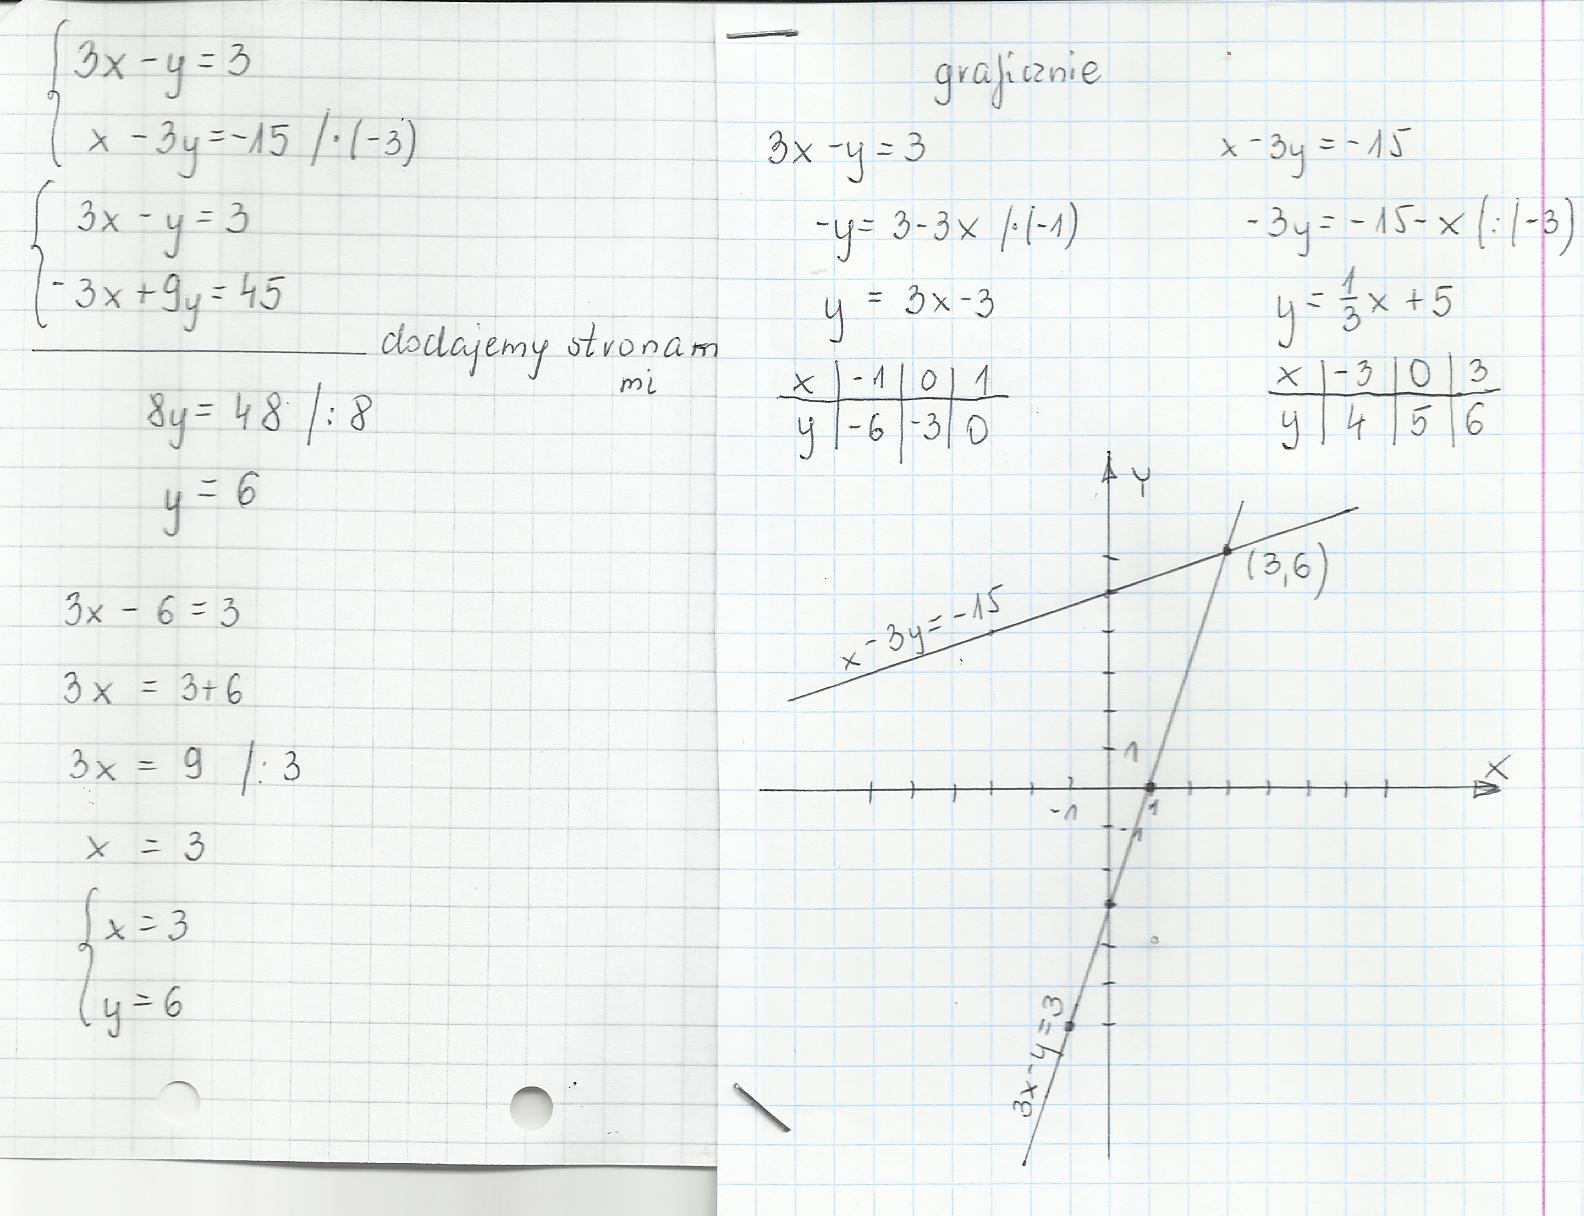 3x - y = 3
x - 3y = -15 /·(-3)
3x - y = 3
-3x + 9y = 45
dodajemy stronam
mi
8y = 48 /: 8
y = 6
3x - 6 = 3
3x = 3+6
3x = 9 /: 3
x = 3
x = 3
y = 6
graficznie
3x - y = 3
-y = 3 - 3x /·(-1)
y = 3x - 3
x | -1 | 0 | 1
y | -6 | -3 | 0
x - 3y = -15
-3y = -15 - x /: (-3)
y = 1/3 x + 5
x | -3 | 0 | 3
y | 4 | 5 | 6
Y
(3,6)
x - 3y = -15
1
X
-1
1
-1
3x - y = 3